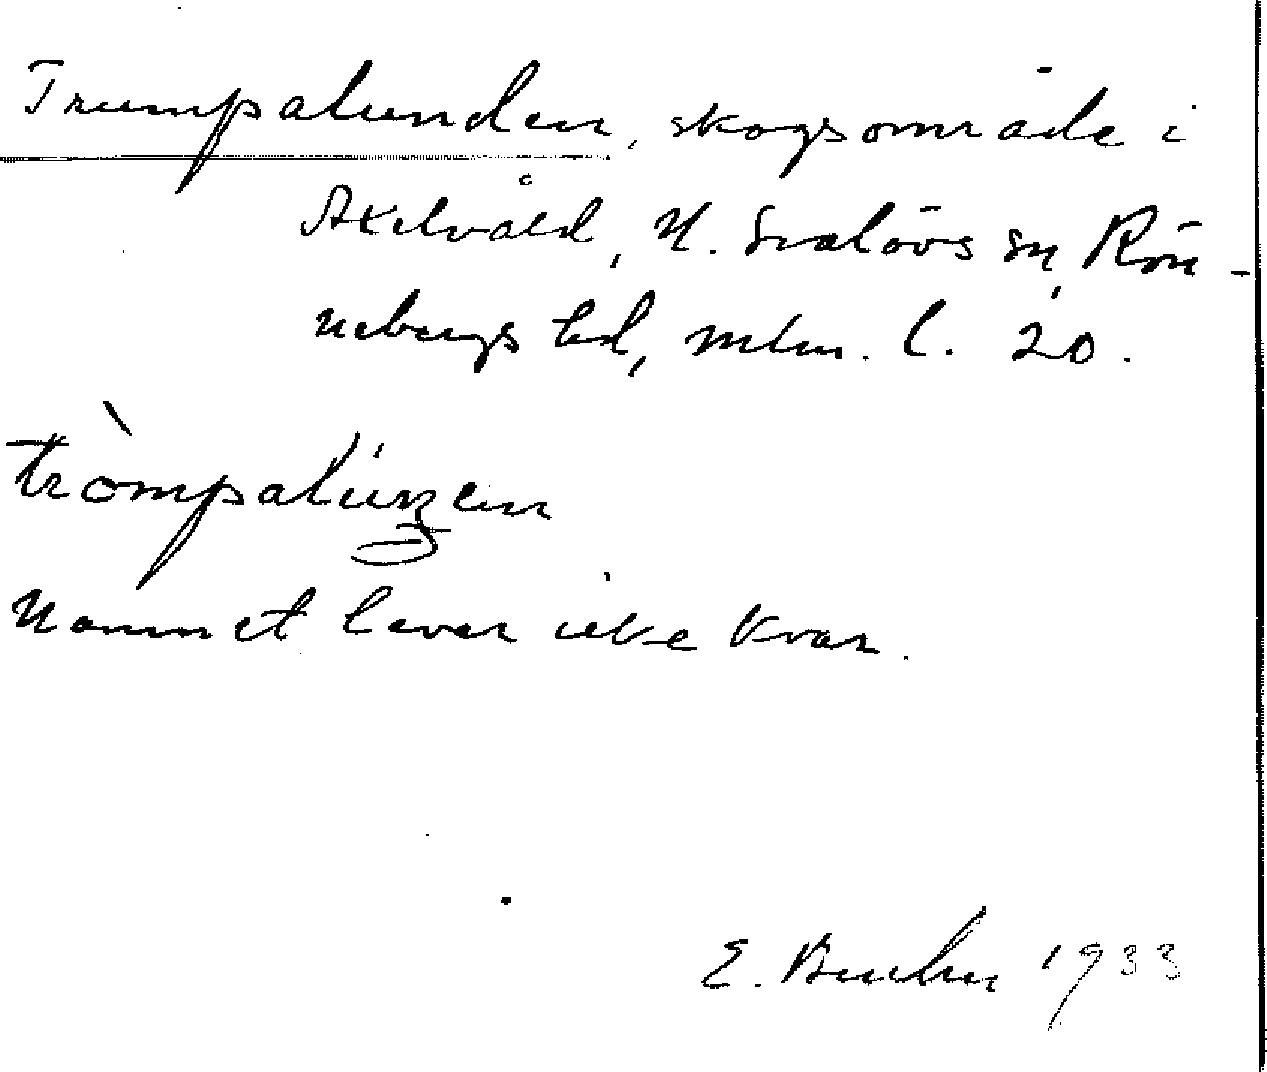 Trumpalunden, skogsområde i
Axelvåld, N. Svalövs sn, Rön-
nebergs hd, mtm. l. 20.
trompalunzen
Namnet lever icke kvar.
E. 1933